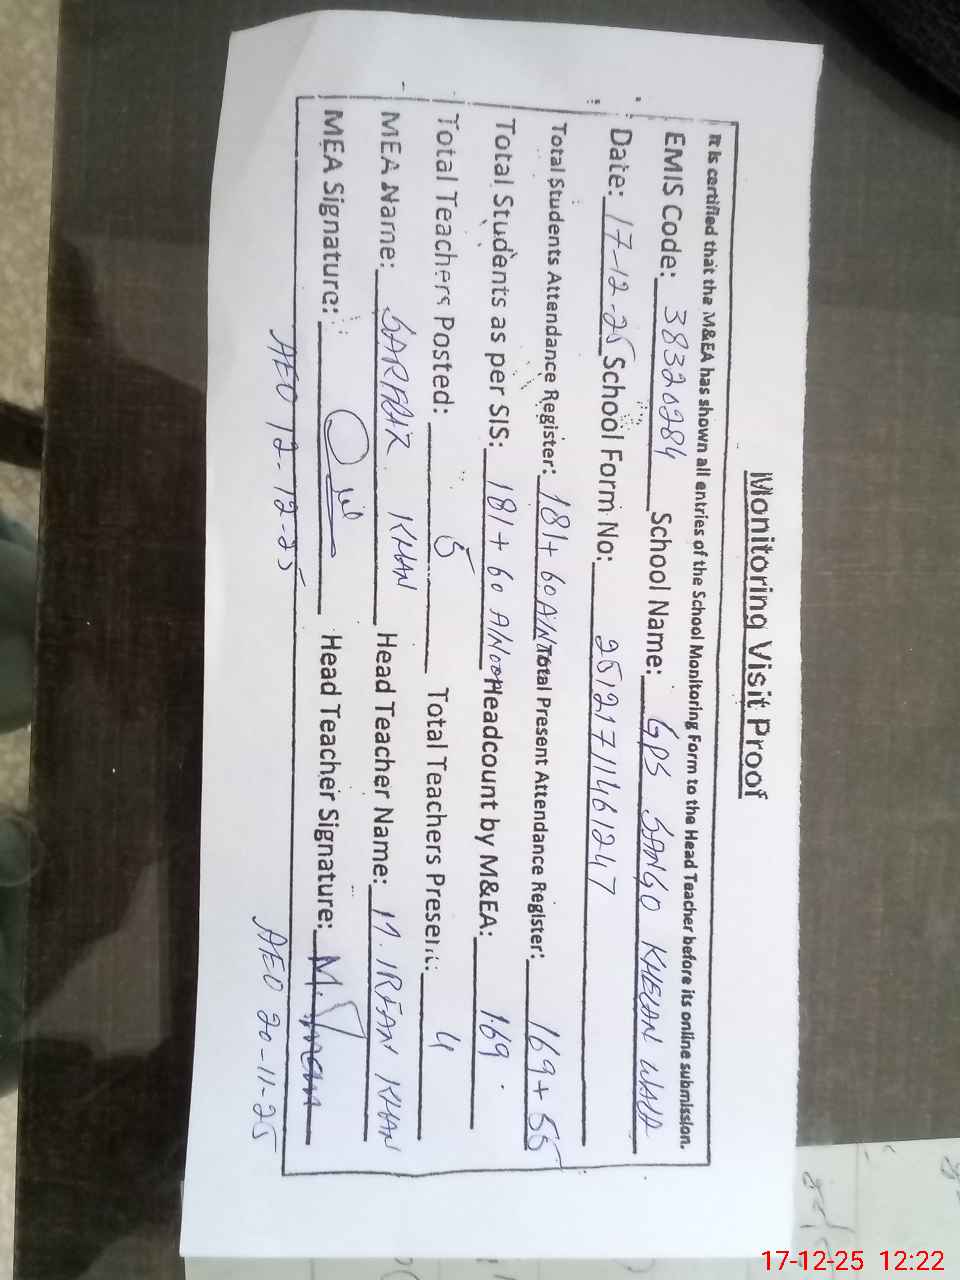 Monitoring Visit Proof
It is certified that the M&EA has shown all entries of the School Monitoring Form to the Head Teacher before its online submission.
EMIS Code: 38320284 School Name: GPS SANGO KHELAN WALA
Date: 17-12-25 School Form No: 25121711461247
Total Students Attendance Register: 181+60 Total Present Attendance Register: 169+55
Total Students as per SIS: 181+60 Headcount by M&EA: 169
Total Teachers Posted: 5 Total Teachers Present: 4
MEA Name: SARFRAZ KHAN Head Teacher Name: M. IRFAN KHAN
MEA Signature: Head Teacher Signature:
AEO 12-12-25 AEO 20-11-25
17-12-25 12:22